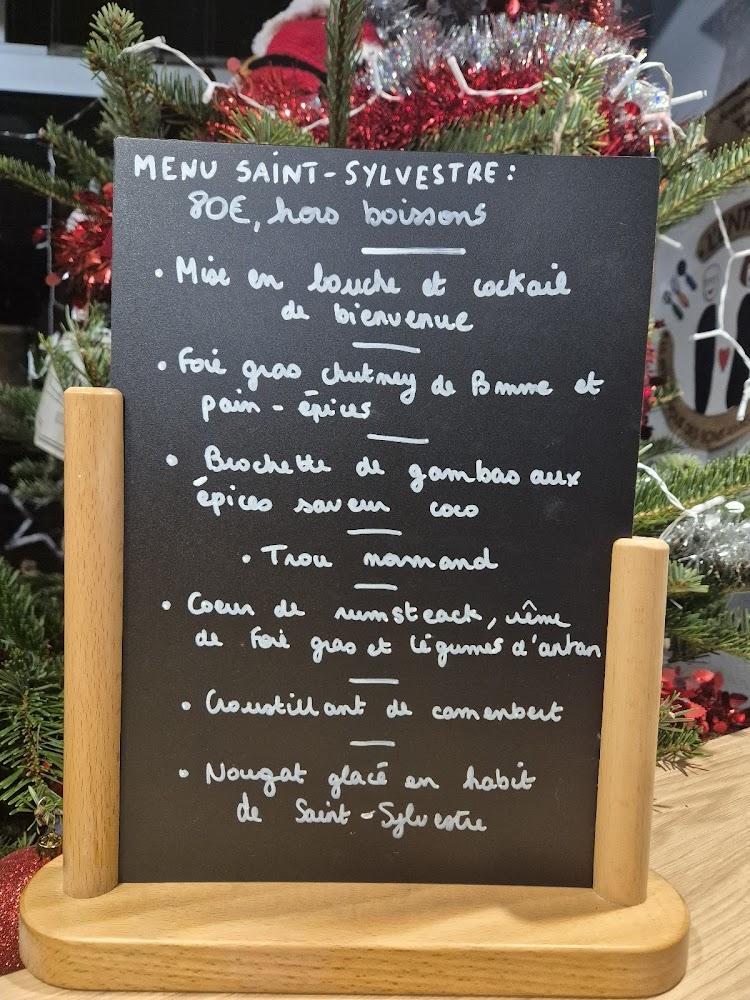 MENU SAINT-SYLVESTRE :
80€, hors boissons
• Mise en bouche et cocktail
de bienvenue
• Foie gras chutney de Pomme et
pain - épices
• Brochette de gambas aux
épices saveur coco
• Trou normand
• Coeur de rumsteack, crème
de Foie gras et légumes d'antan
• Croustillant de camembert
• Nougat glacé en habit
de Saint-Sylvestre